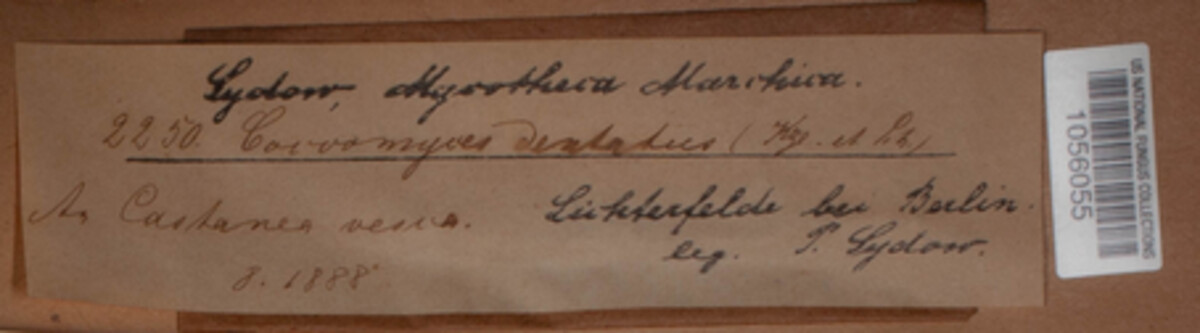 Sydow, Mycotheca Marchica.
2250. Coccomyces dentatus (Kze. et Sch.)
An Castanea vesca.
Lichterfelde bei Berlin.
leg. P. Sydow.
8. 1888
US NATIONAL FUNGUS COLLECTIONS
1056055